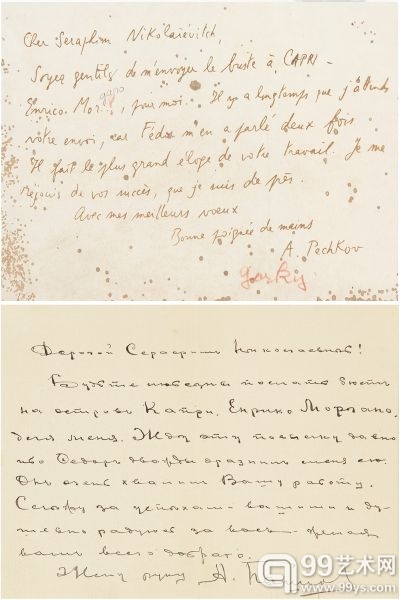 Cher Seraphim Nikolaïevitch,
Soyez gentils de m'envoyer le buste à CAPRI –
Enrico. Mor gano, pour moi. Il y a longtemps que j'attends
votre envoi, car Fédor m'en a parlé deux fois
Il fait le plus grand éloge de votre travail. Je me
réjouis de vos succès, que je suis de près.
Avec mes meilleurs voeux
Bonne poignée de mains
A. Pechkov
gorkij
Дорогой Серафимъ Николаевичъ!
Будьте любезны послать бюстъ
на островъ Капри, Енрико Моргано,
для меня. Жду эту посылку давно
ибо Федоръ дважды дразнилъ меня ею.
Онъ очень хвалилъ Вашу работу.
Слежу за успехами вашими и ду-
шевно радуюсь за васъ – желая
вамъ всего доброго.
Жму руку А. Пешков
99艺术网
www.99ys.com